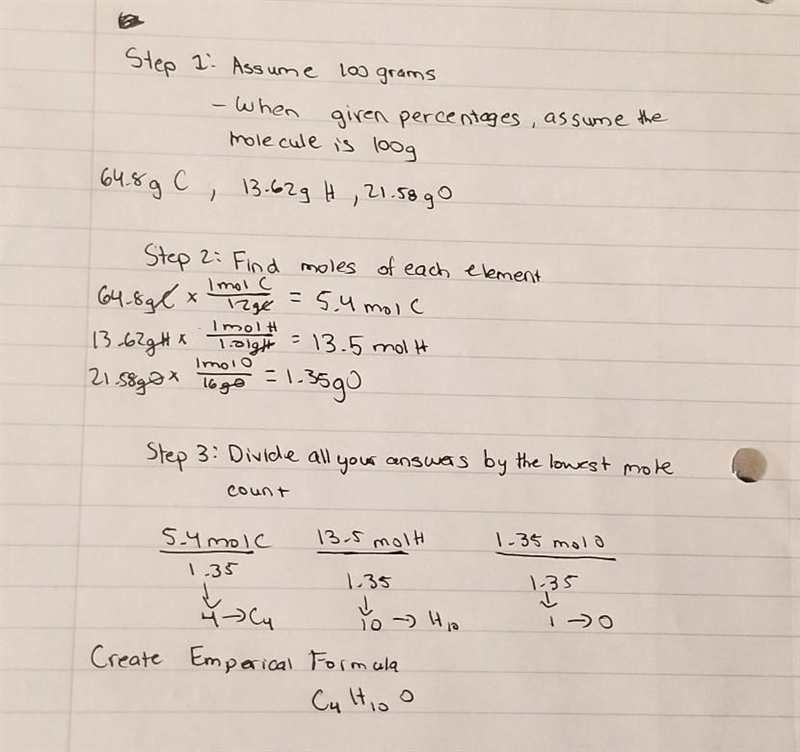 Step 1: Assume 100 grams
- When given percentages, assume the
molecule is 100g
64.8g C , 13.62g H , 21.58gO
Step 2: Find moles of each element
64.8gC × 1mol C / 12gC = 5.4 mol C
13.62gH × 1molH / 1.01gH = 13.5 molH
21.58gO × 1molO / 16gO = 1.35gO
Step 3: Divide all your answers by the lowest mole
count
5.4molC 13.5 molH 1.35 molO
1.35 1.35 1.35
↓ ↓ ↓
4 → C₄ 10 → H₁₀ 1 → O
Create Emperical Formula
C₄H₁₀O